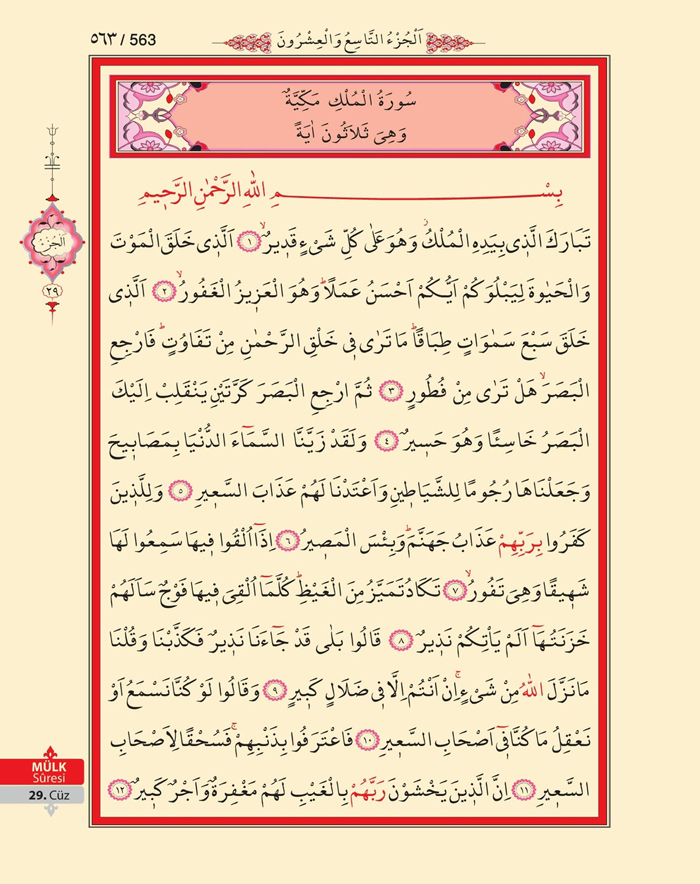 ٥٦٣ / 563
اَلْجُزْءُ التَّاسِعُ وَالْعِشْرُونَ
سُورَةُ الْمُلْكِ مَكِّيَّةٌ
وَهِيَ ثَلَاثُونَ اٰيَةً
اَلْجُزْءُ
٢٩
بِسْمِ اللّٰهِ الرَّحْمٰنِ الرَّحٖيمِ
تَبَارَكَ الَّذٖي بِيَدِهِ الْمُلْكُؗ وَهُوَ عَلٰى كُلِّ شَيْءٍ قَدٖيرٌۙ ﴿١﴾ اَلَّذٖي خَلَقَ الْمَوْتَ
وَالْحَيٰوةَ لِيَبْلُوَكُمْ اَيُّكُمْ اَحْسَنُ عَمَلاًؕ وَهُوَ الْعَزٖيزُ الْغَفُورُۙ ﴿٢﴾ اَلَّذٖي
خَلَقَ سَبْعَ سَمٰوَاتٍ طِبَاقاًؕ مَا تَرٰى فٖي خَلْقِ الرَّحْمٰنِ مِنْ تَفَاوُتٍؕ فَارْجِعِ
الْبَصَرَۙ هَلْ تَرٰى مِنْ فُطُورٍ ﴿٣﴾ ثُمَّ ارْجِعِ الْبَصَرَ كَرَّتَيْنِ يَنْقَلِبْ اِلَيْكَ
الْبَصَرُ خَاسِئاً وَهُوَ حَسٖيرٌ ﴿٤﴾ وَلَقَدْ زَيَّنَّا السَّمَٓاءَ الدُّنْيَا بِمَصَابٖيحَ
وَجَعَلْنَاهَا رُجُوماً لِلشَّيَاطٖينِ وَاَعْتَدْنَا لَهُمْ عَذَابَ السَّعٖيرِ ﴿٥﴾ وَلِلَّذٖينَ
كَفَرُوا بِرَبِّهِمْ عَذَابُ جَهَنَّمَؕ وَبِئْسَ الْمَصٖيرُ ﴿٦﴾ اِذَٓا اُلْقُوا فٖيهَا سَمِعُوا لَهَا
شَهٖيقاً وَهِيَ تَفُورُۙ ﴿٧﴾ تَكَادُ تَمَيَّزُ مِنَ الْغَيْظِؕ كُلَّمَٓا اُلْقِيَ فٖيهَا فَوْجٌ سَاَلَهُمْ
خَزَنَتُهَٓا اَلَمْ يَأْتِكُمْ نَذٖيرٌ ﴿٨﴾ قَالُوا بَلٰى قَدْ جَٓاءَنَا نَذٖيرٌ فَكَذَّبْنَا وَقُلْنَا
مَا نَزَّلَ اللّٰهُ مِنْ شَيْءٍۚ اِنْ اَنْتُمْ اِلَّا فٖي ضَلَالٍ كَبٖيرٍ ﴿٩﴾ وَقَالُوا لَوْ كُنَّا نَسْمَعُ اَوْ
نَعْقِلُ مَا كُنَّا فٖٓي اَصْحَابِ السَّعٖيرِ ﴿١٠﴾ فَاعْتَرَفُوا بِذَنْبِهِمْۚ فَسُحْقاً لِاَصْحَابِ
السَّعٖيرِ ﴿١١﴾ اِنَّ الَّذٖينَ يَخْشَوْنَ رَبَّهُمْ بِالْغَيْبِ لَهُمْ مَغْفِرَةٌ وَاَجْرٌ كَبٖيرٌ ﴿١٢﴾
MÜLK
Sûresi
29. Cüz